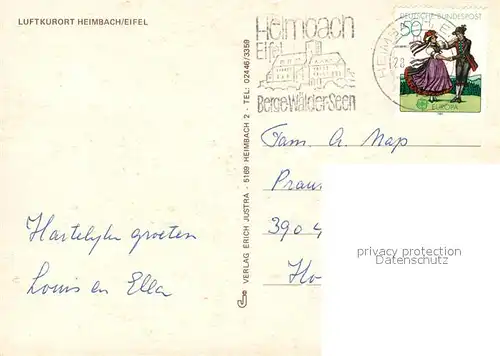 LUFTKURORT HEIMBACH/EIFEL
Heimbach
Eifel
Berge-Wälder-Seen
DEUTSCHE BUNDESPOST
50
EUROPA
VERLAG ERICH JUSTRA - 5169 HEIMBACH 2 - TEL: 02446/3359
Fam. A. Nap
Hartelijke groeten
Louis en Ella
privacy protection
Datenschutz